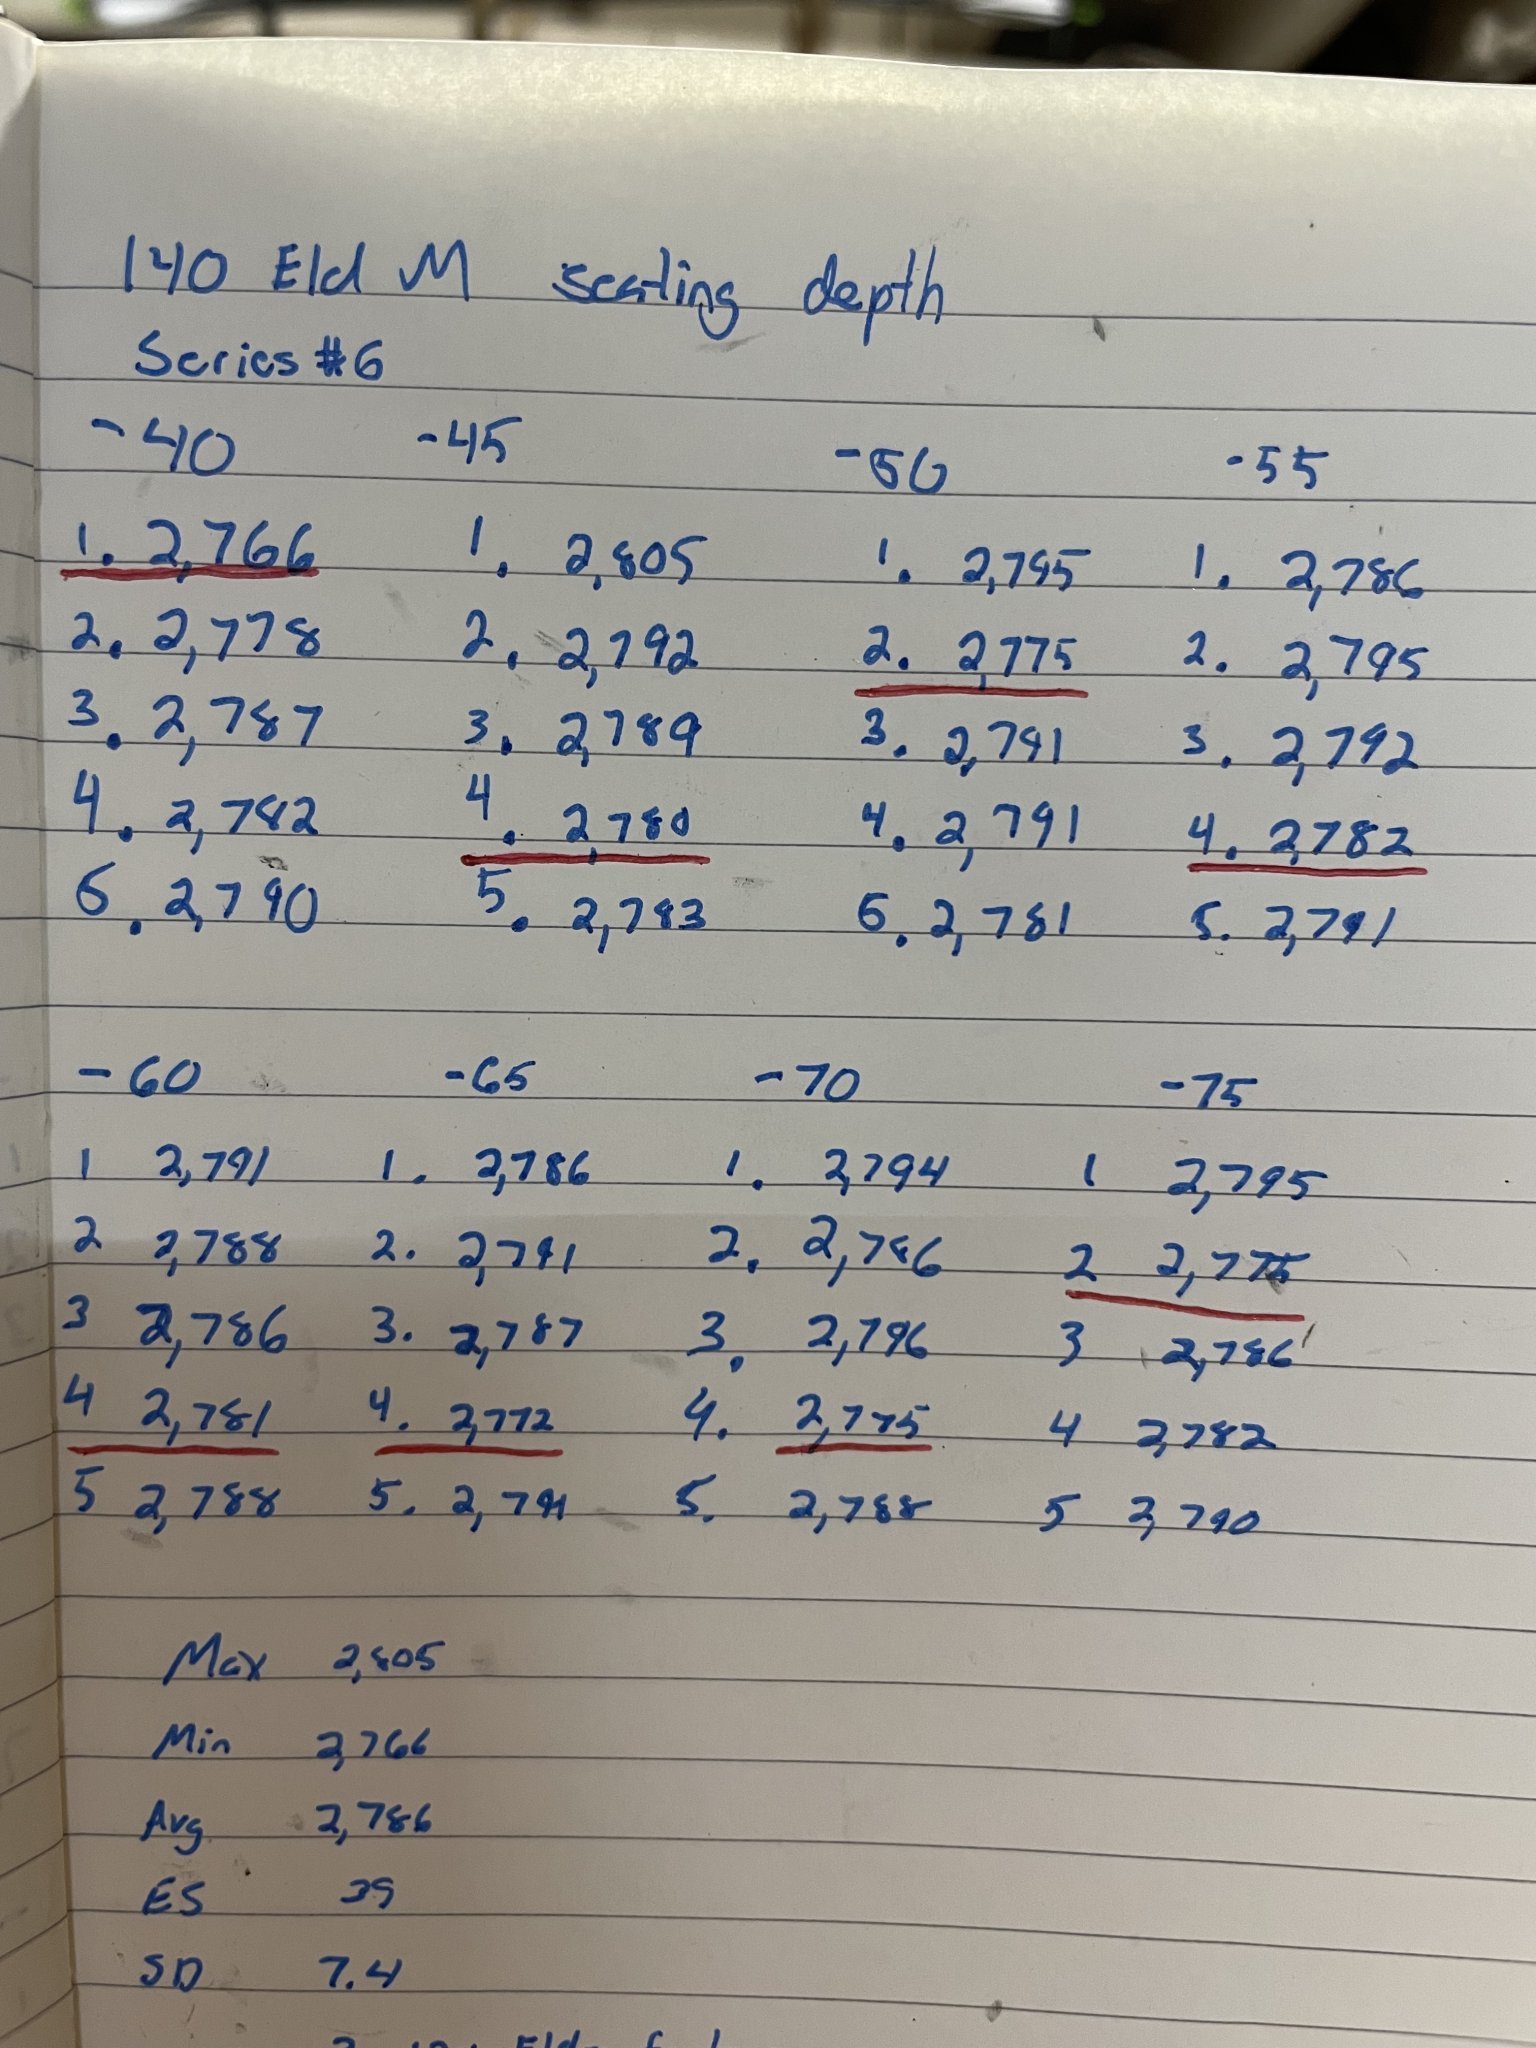 140 Eld M seating depth
Series #6
-40 -45 -50 -55
1. 2,766 1. 2,805 1. 2,795 1. 2,786
2. 2,778 2. 2,792 2. 2,775 2. 2,795
3. 2,787 3. 2,789 3. 2,791 3. 2,792
4. 2,782 4. 2,780 4. 2,791 4. 2,782
5. 2,790 5. 2,783 5. 2,781 5. 2,791
-60 -65 -70 -75
1 2,791 1. 2,786 1. 2,794 1 2,795
2 2,788 2. 2,791 2. 2,786 2 2,775
3 2,786 3. 2,787 3. 2,796 3 2,786
4 2,781 4. 2,772 4. 2,775 4 2,782
5 2,788 5. 2,791 5. 2,788 5 2,790
Max 2,805
Min 2,766
Avg 2,786
ES 39
SD 7.4